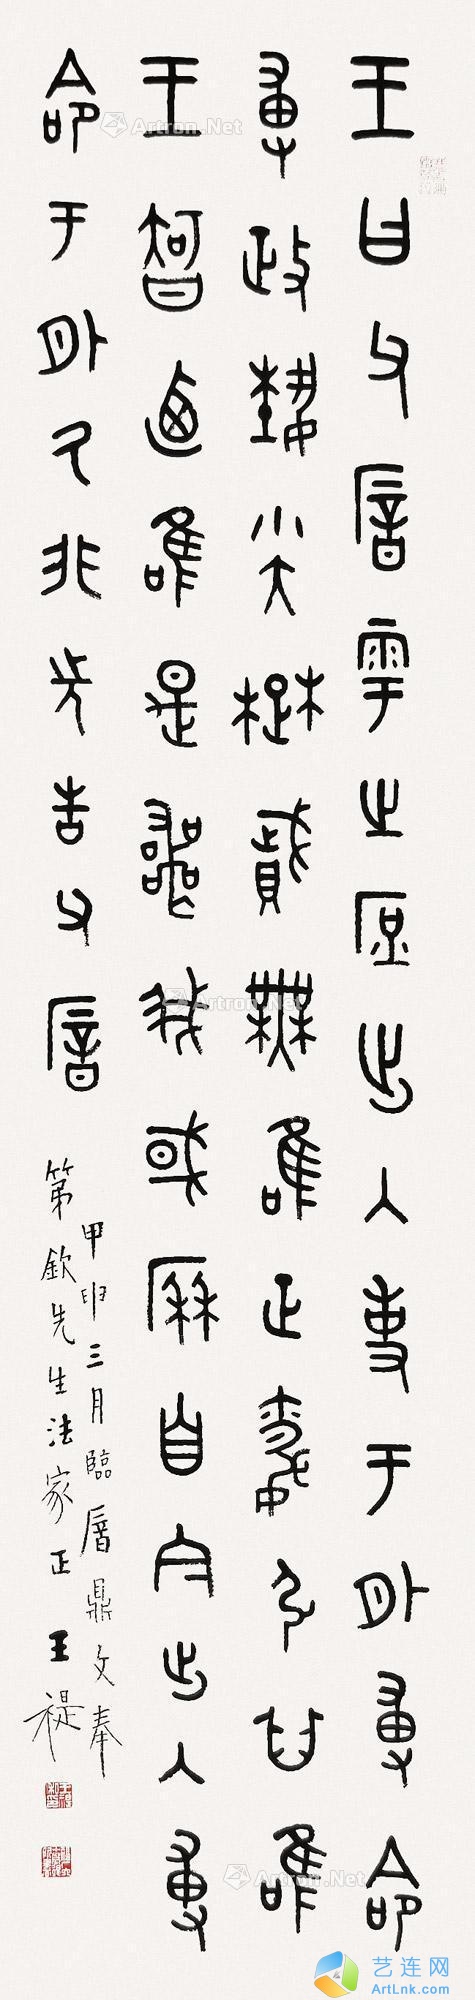 王曰父㕆雩之庶出入事于外尃命
尃政埶小大楚賦無唯正聞弘其唯
王智廼唯是喪我或厤自今出入尃
命于外厥非先告父㕆
甲申三月臨㕆鼎文奉
第欽先生法家正 王禔
Artron.Net
Artron.Net
Artron.Net
Artron.Net
艺连网
ArtLnk.com